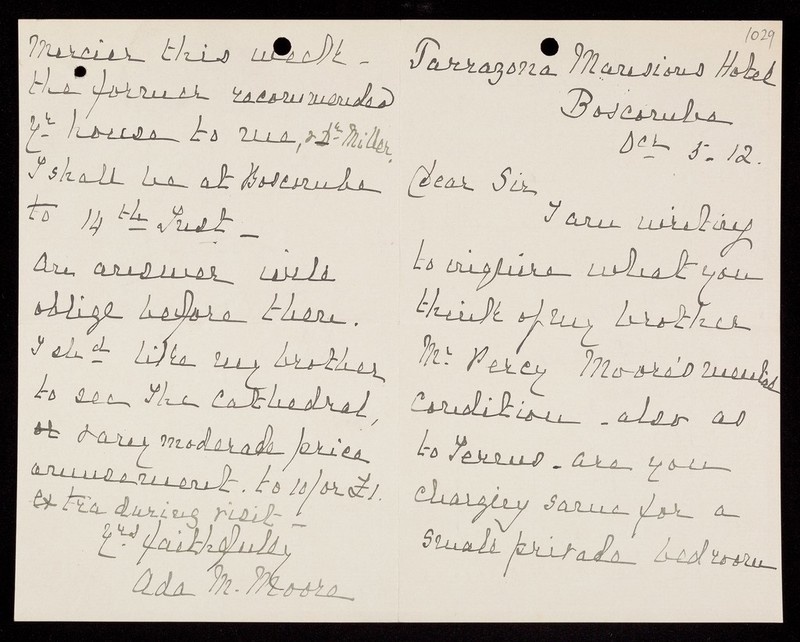 1029
Tarrazona Mansions Hotel
Boscombe
Oct 5. 12.
Dear Sir
I am writing
to inquire what you
think of my brother
Mr Percy Moore's mental
condition - also as
to Terms - are you
charging same for a
small private bedroom
Mercier this week -
the former recommended
yr house to me, & Dr Miller.
I shall be at Boscombe
to 14th Inst -
An answer will
oblige before then.
I shd like my brother
to see The Cathedral,
or & any moderate price
amusement. to 10/ or £1.
extra during visit -
Yrs faithfully
Ada M. Moore